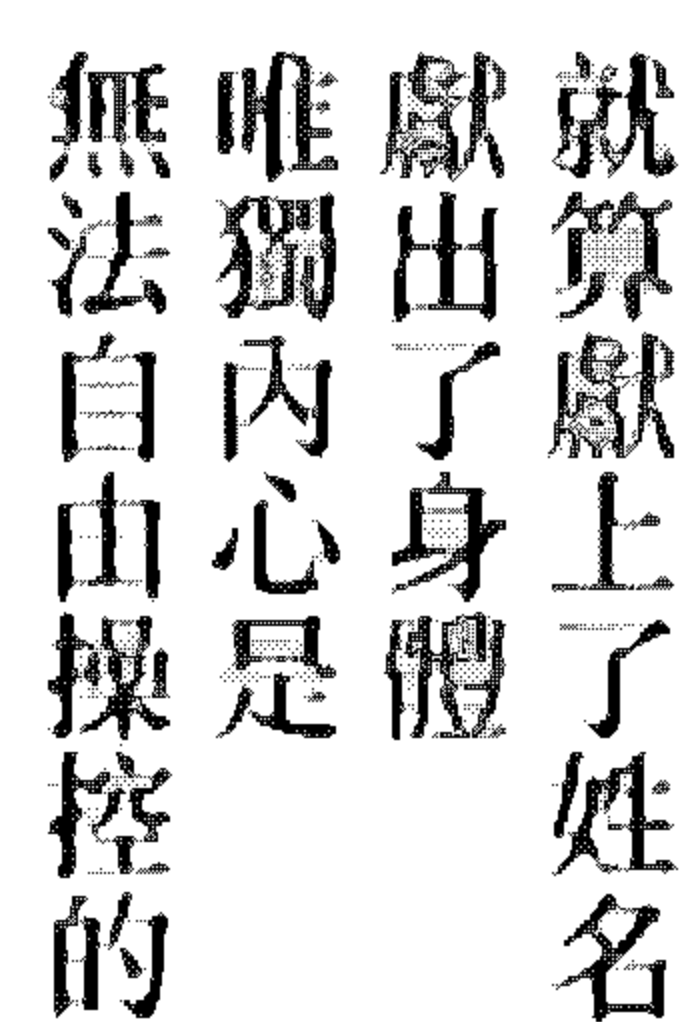 就算獻上了姓名
獻出了身體
唯獨內心是
無法自由操控的